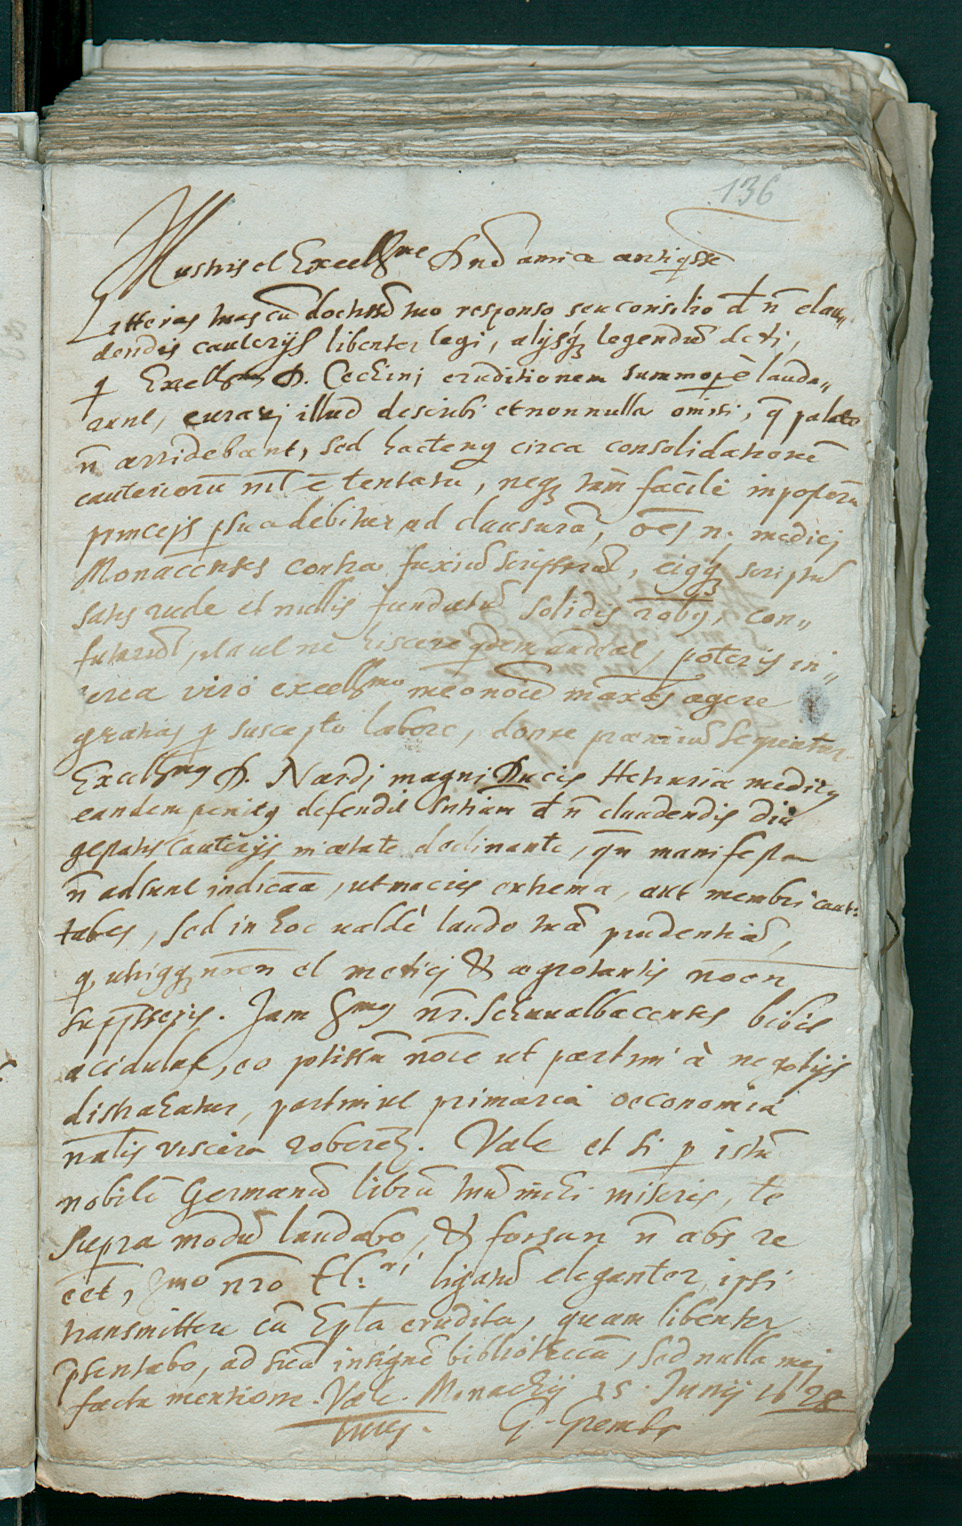 136
Illustris et Excellme Dnē amice antiqssē
Litteras tuas cū doctissō tuo responso seu consilio d n̄ clau„
dendis cauterijs libenter legi, alijsq; legendū dedi,
q Excellmi D. Cechinj eruditionem summopè lauda„
runt, curavj illud describi et nonnulla omisi, q̄ palato
n̄ arridebant, sed hactenq circa consolidationē
cauteriorū nil ē tentatū, neq; tam̄ facilè inposterū
princeps psuadebitur ad clausurā, oēs n. medicj
Monacenses contra fuxiū scripserūt, eiqq; scriptū
satis rude et nullis fundatū solidis robq, con„
futarūt, ita ut nē hiscere qdem audeat, poteris in„
terea viro excellmo meo nōie maxās agere
gratias p suscepto labore, donec præmiū sequatur
Excellmq D. Nardj magni Ducis Hetruriæ medicq
eandem penitq defendit sntiam d n̄ claudendis diu
gestatis cauterijs in ætate declinante, qn manifesta
n̄ adsunt indicaā, ut macies extrema, aut membri caut:
tabes, sed in hoc valdè laudo tuā prudentiā,
q, utriqq; nomen et medici & ægrotantis nomen
suppsseris. Jam Smq nr. Schwalbacenses bibit
acidulas, eo potissū nōie ut partim à negotijs
distrahatur, partim ut primaria oeconomiæ
nālis viscera roboret. Vale et si p istū
nobilē Germanū librū tuū mihi miseris, te
supra modū laudabo, & forsan n̄ abs re
eēt, Smo nrō El:ri ligatū eleganter ipsi
transmittere cū Epla erudita, quam libenter
psentabo, ad suā insignē bibliothecā, sed nulla mej
facta mentione. Vale. Monachij 25. Junij 1628
tuus. G. Grembs